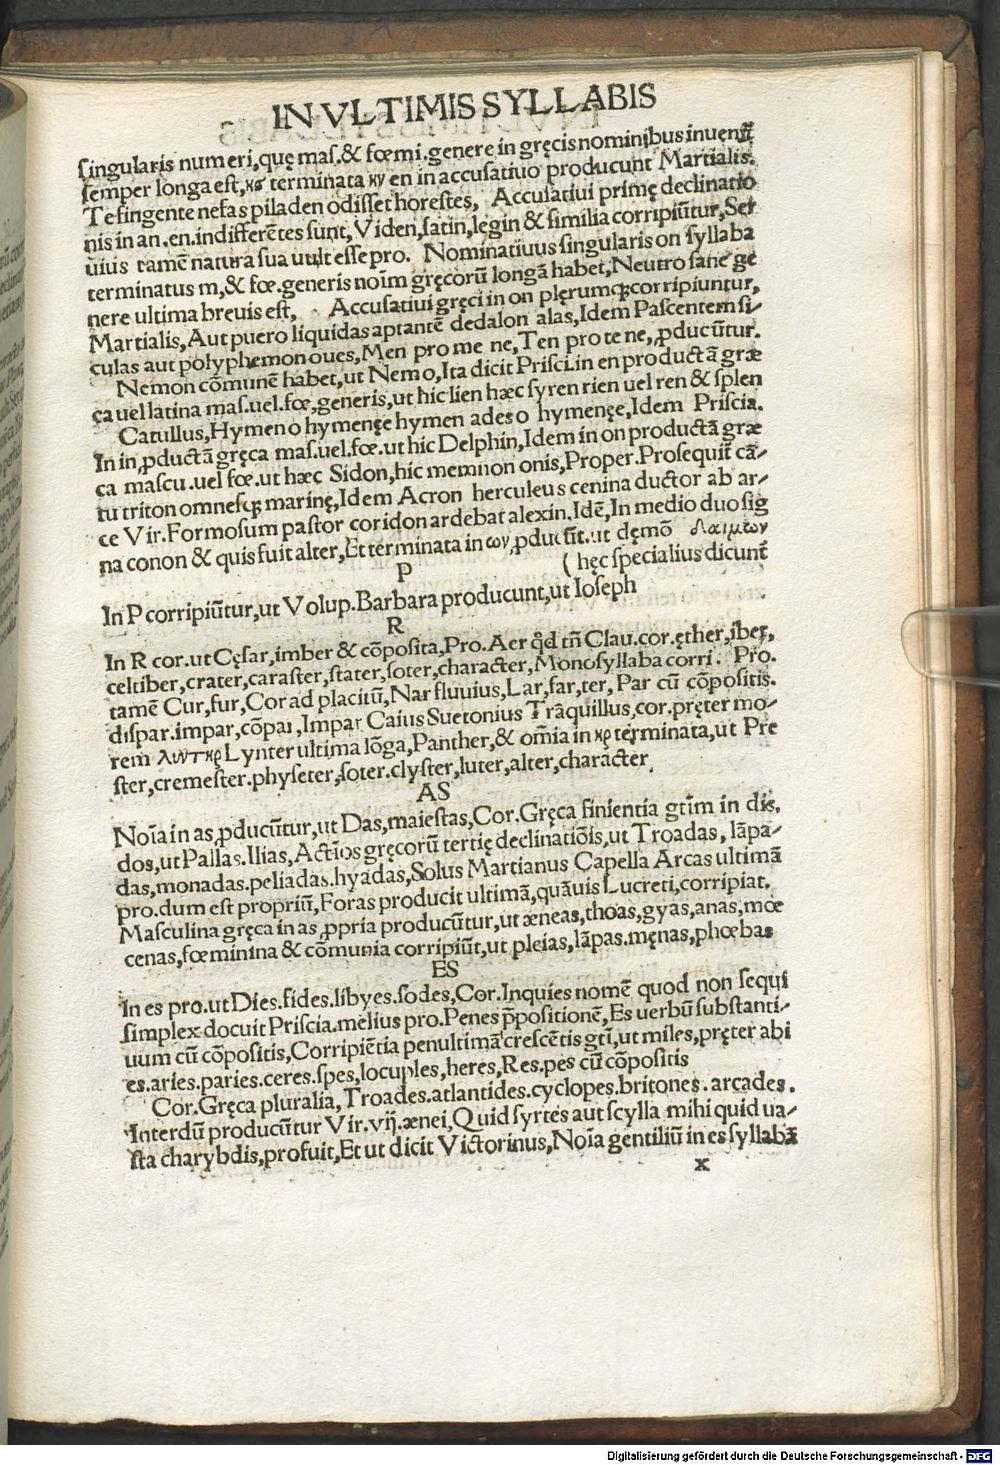 IN VLTIMIS SYLLABIS
singularis numeri,quę mas.&fœmi.genere in gręcis nominibus inuenit̃
semper longa est,ηs terminata ην en in accusatiuo producunt Martialis.
Te fingente nefas piladen odisset horestes, Accusatiui primę declinatio
nis in an.en.indifferẽtes sunt,Viden,satin,legin & similia corripiũtur,Ser
uius tamẽ natura sua uult esse pro. Nominatiuus singularis on syllaba
terminatus m,& fœ.generis noĩm gręcorũ longã habet,Neutro sane ge
nere ultima breuis est, Accusatiui gręci in on plęrumqꝫ corripiuntur,
Martialis,Aut puero liquidas aptantẽ dedalon alas,Idem Pascentem si⸗
culas aut polyphemon oues,Men pro me ne,Ten pro te ne,ꝓducũtur.
Nemon cõmunẽ habet,ut Nemo,Ita dicit Prisci.in en productã græ
ça uel latina mas.uel.fœ,generis,ut hic lien hæc syren rien uel ren & splen
Catullus,Hymen o hymenęe hymen ades o hymenęe,Idem Priscia.
In in,ꝓductã gręca mas.uel.fœ.ut hic Delphin,Idem in on productã græ
ca mascu.uel fœ.ut hæc Sidon,hic memnon onis,Proper.Prosequit̃ cã⸗
tu triton omnesqꝫ marinę,Idem Acron herculeus cenina ductor ab ar⸗
ce Vir.Formosum pastor coridon ardebat alexin.Idẽ,In medio duo sig
na conon & quis fuit alter,Et terminata in ων,ꝓducũt.ut dęmõ Δαιμων
P (hęc specialius dicunt̃
In P corripiũtur,ut Volup.Barbara producunt,ut Ioseph
R
In R cor.ut Cęsar,imber & cõposita,Pro.Aer qđ tñ Clau.cor.ęther,iber,
celtiber,crater,caraster,stater,soter,character,Monosyllaba corri. Pro.
tamẽ Cur,fur,Cor ad placitũ,Nar fluuius,Lar,far,ter, Par cũ cõpositis.
dispar.impar,cõpar,Impar Caius Suetonius Trãquillus,cor.pręter mo⸗
rem λυντηρ Lynter ultima lõga,Panther,& om̃ia in ηρ terminata,ut Pre
ster,cremester.physeter,soter.clyster,luter,alter,character,
AS
Noĩa in as,ꝓducũtur,ut Das,maiestas,Cor.Gręca finientia gtĩm in dis.
dos,ut Pallas.Ilias,Actĩos gręcorũ tertię declinatiõis,ut Troadas, lãpa⸗
das,monadas.peliadas.hyadas,Solus Martianus Capella Arcas ultimã
pro.dum est propriũ,Foras producit ultimã,quãuis Lucreti,corripiat.
Masculina gręca in as,ꝓpria producũtur,ut æneas,thoas,gyas,anas,mœ
cenas,fœminina & cõmunia corripiũt,ut pleias,lãpas.męnas,phœbas
ES
In es pro.ut Dies.fides.libyes.sodes,Cor.Inquies nomẽ quod non sequi
simplex docuit Priscia.melius pro.Penes p̃positionẽ,Es uerbũ substanti⸗
uum cũ cõpositis,Corripiẽtia penultimã crescẽtis gtĩ,ut miles,pręter abi
es.aries.paries.ceres.spes,locuples,heres,Res.pes cũ cõpositis
Cor.Gręca pluralia,Troades.atlantides.cyclopes.britones.arcades.
Interdũ producũtur Vir.vij.ænei,Quid syrtes aut scylla mihi quid ua⸗
sta charybdis,profuit,Et ut dicit Victorinus,Noĩa gentiliũ in es syllabã
x
Digitalisierung gefördert durch die Deutsche Forschungsgemeinschaft - DFG